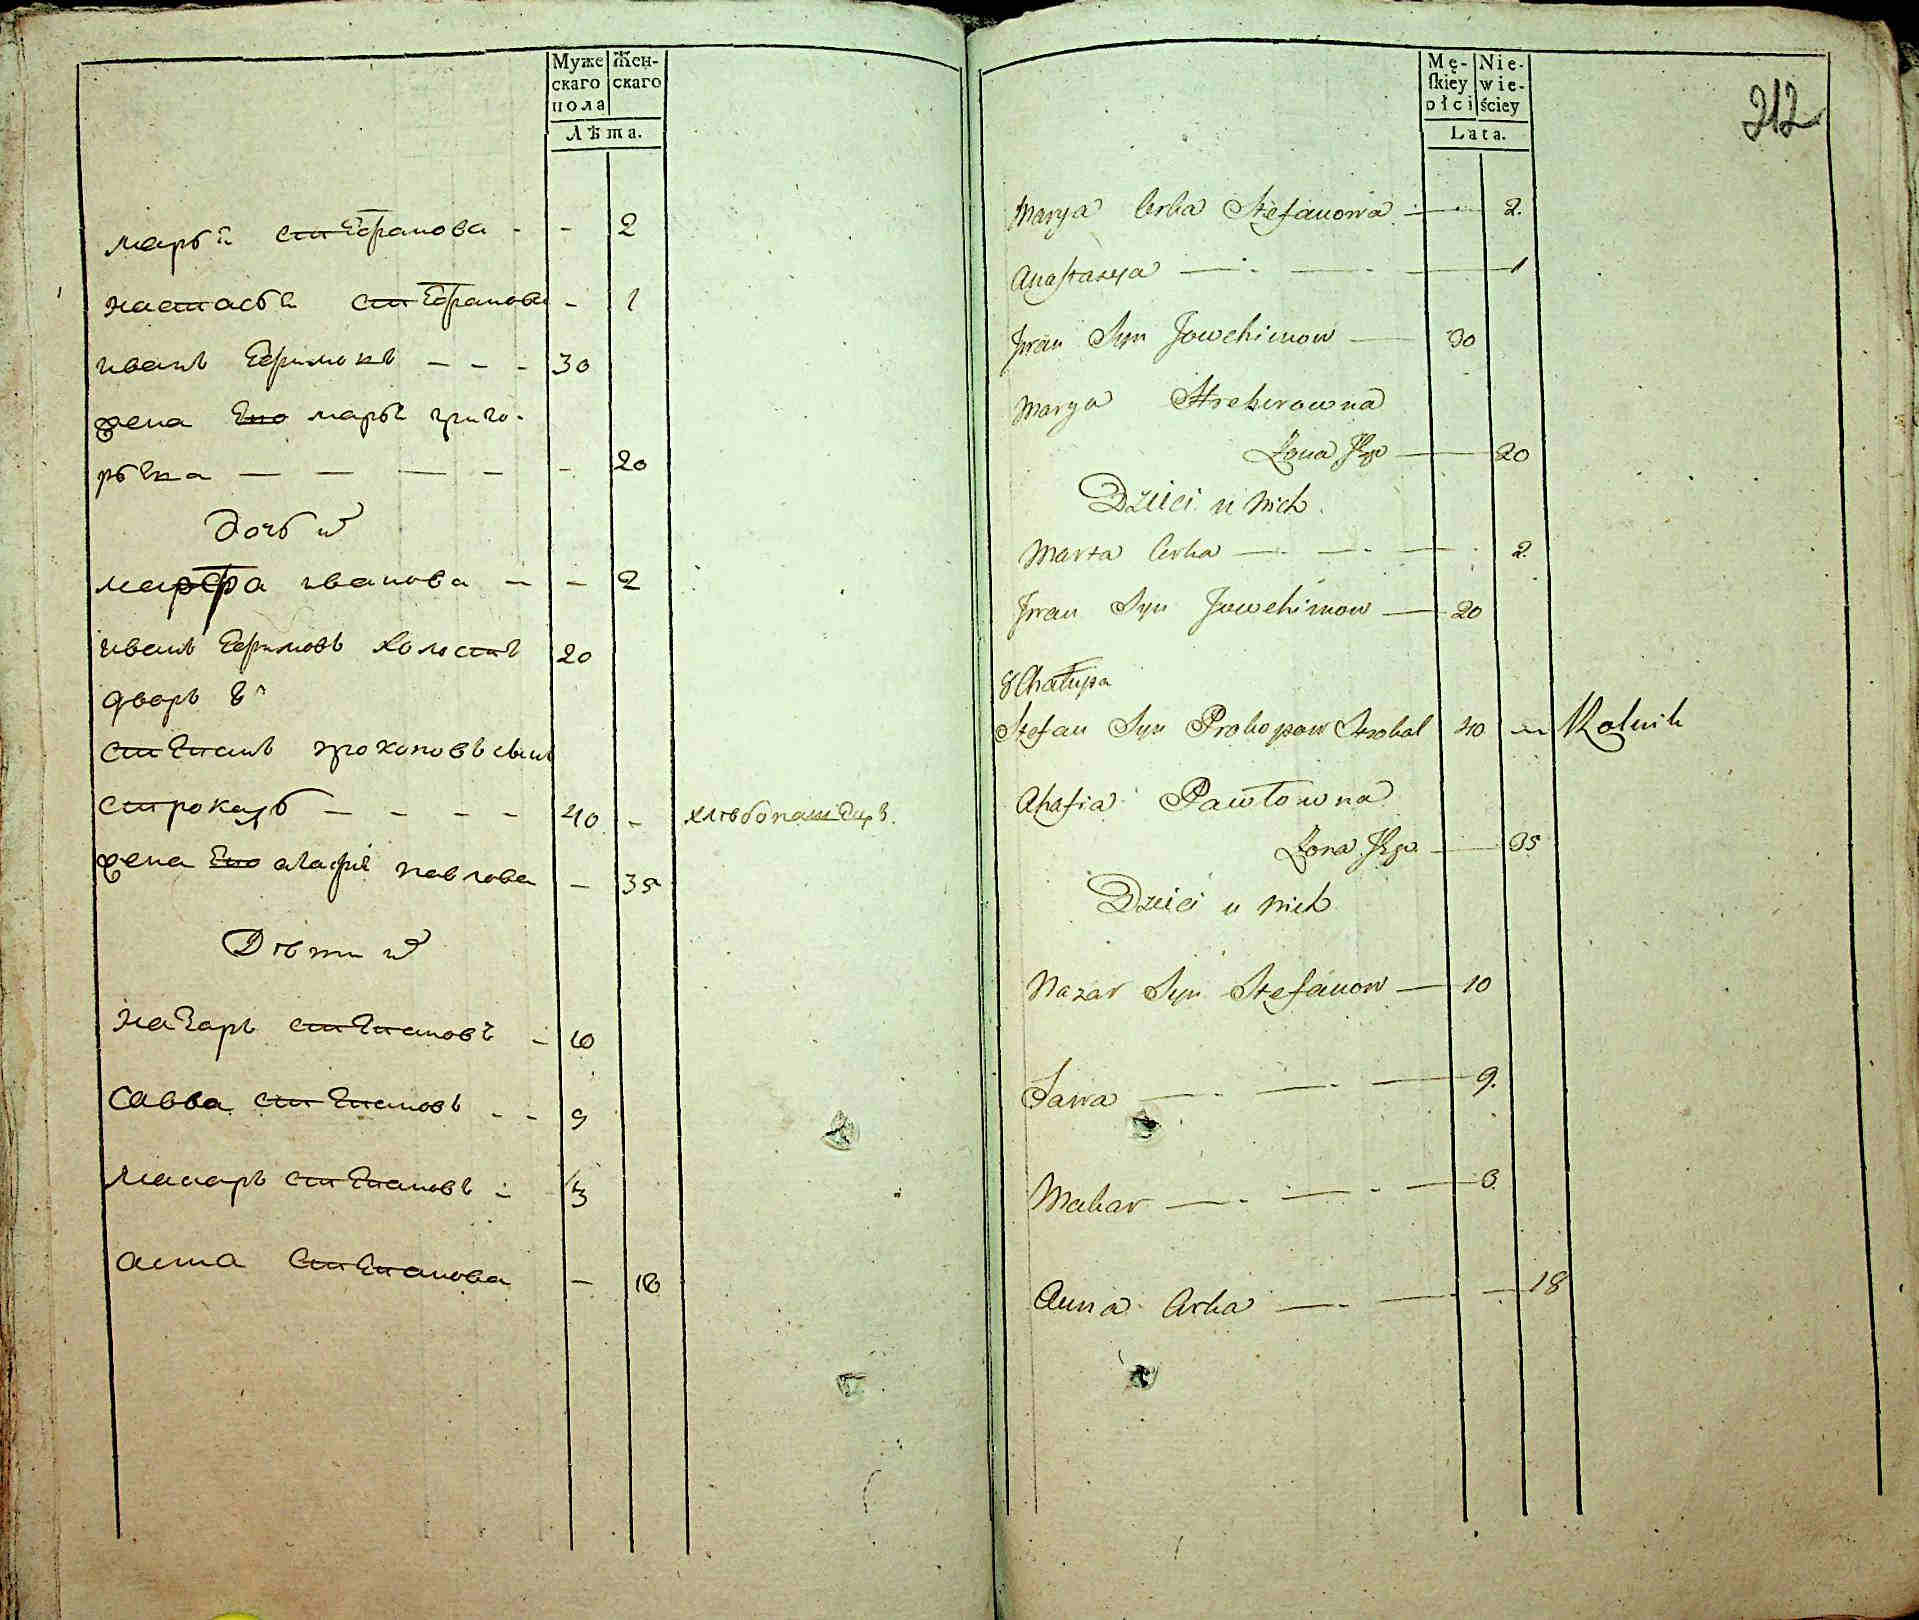 Муже
скаго
пола
Жен-
скаго
Лѣта.
марья стефанова - - 2
настасья стефанова - 1
иванъ Ефимовъ - - - 30
жена Его марья григо-
рьева - - - - - 20
дочь ихъ
марфа иванова - - 2
иванъ Ефимовъ холостъ 20
дворъ 8й
степанъ прокоповъ сынъ
строкалъ - - - - 40 - хлѣбопашецъ.
жена Его агафия павлова - 35
Дѣти ихъ
Назаръ степановъ - 10
Савва степановъ - - 9
макаръ степановъ - 3
анна степанова - 18
Mę-
skiey
płci
Nie-
wie-
ściey
Lata.
212
Marya Corka Stefanowa 2.
Anastasya 1
Jwan Syn Jowchimow 30
Marya
Zona Jego 20
Dzieci u nich.
Marta Corka 2.
Jwan Syn Jowchimow 20
8 Chałupa
Stefan Syn Prokopow Strokal 40 Rolnik
Ahafia Pawłowna
Zona Jego 35
Dzieci u nich
Nazar Syn Stefanow 10
Sawa 9.
Makar 3.
Anna Corka 18